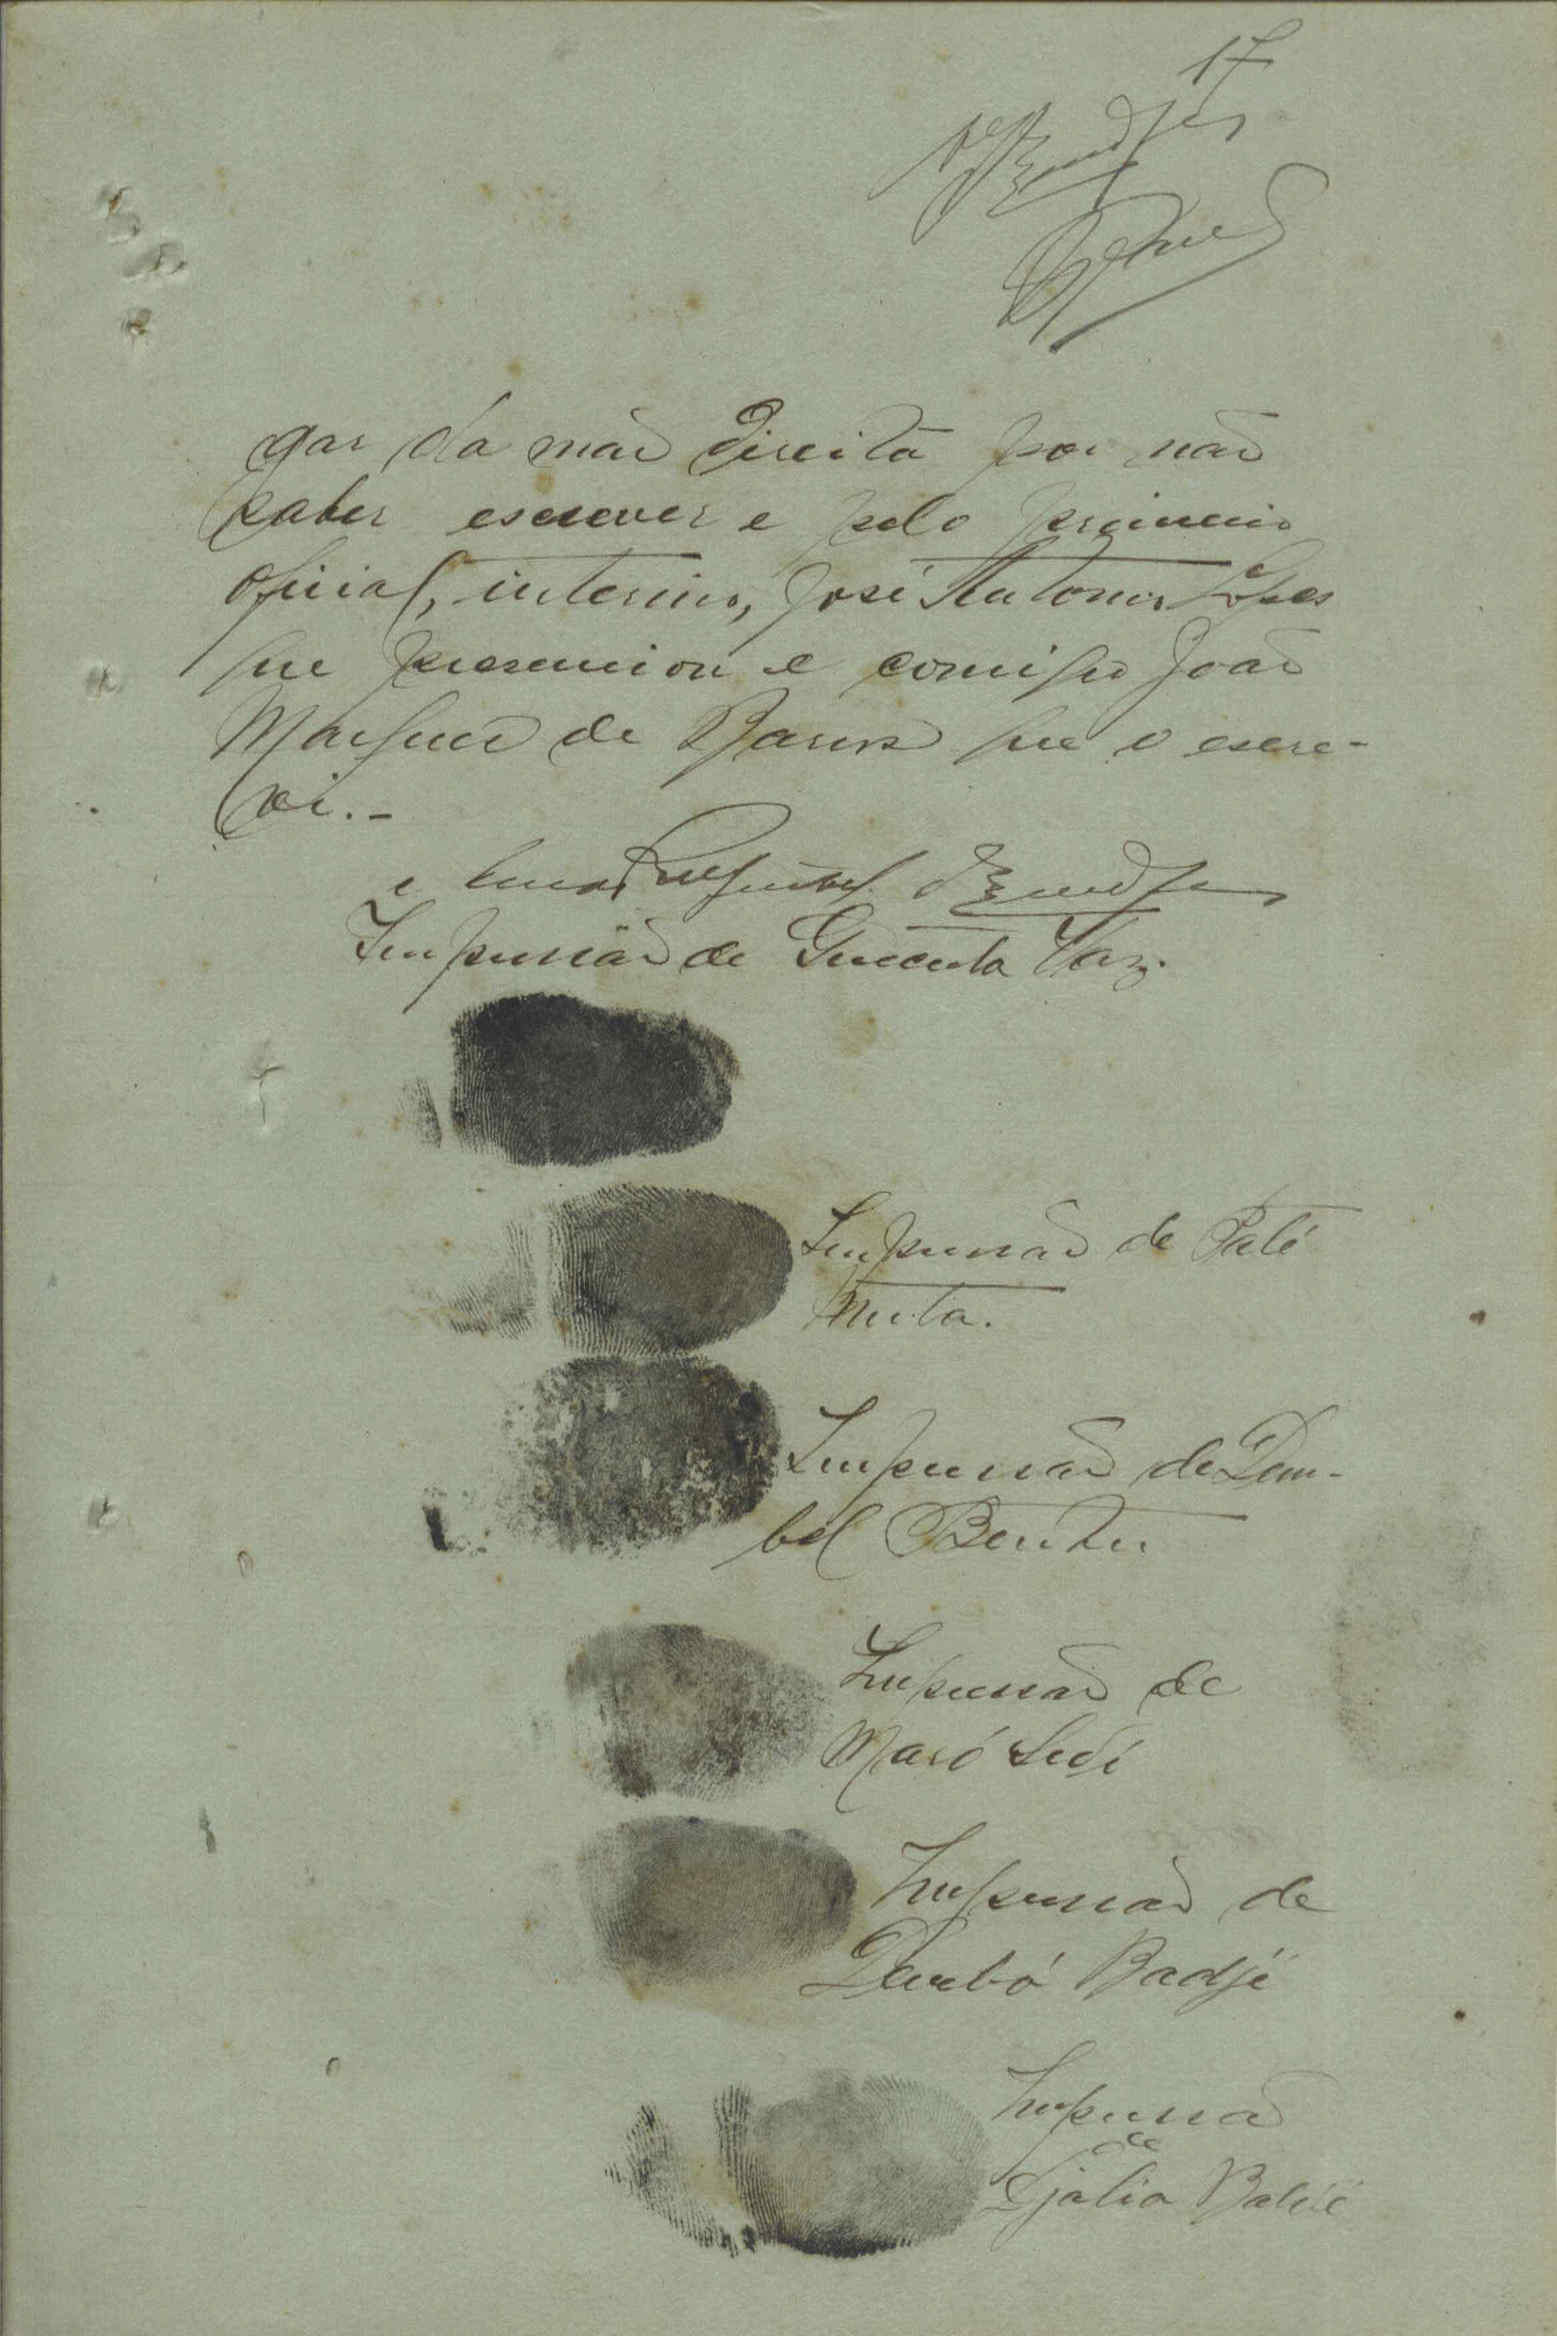 17
gar da mão direita por não
saber escrever e pelo primeiro
oficial, interino, José Antonio Lopes
que presenciou e comigo João
Marques de Barros que o escre-
vi.-
e
Impressão de Vaz.
Impressão de Paté
Muta.
Impressão de Dem-
bel Bentu
Impressão de
Maró Sedi
Impressão de
Dembó Badjé
Impressão
de
Djalia Baldé